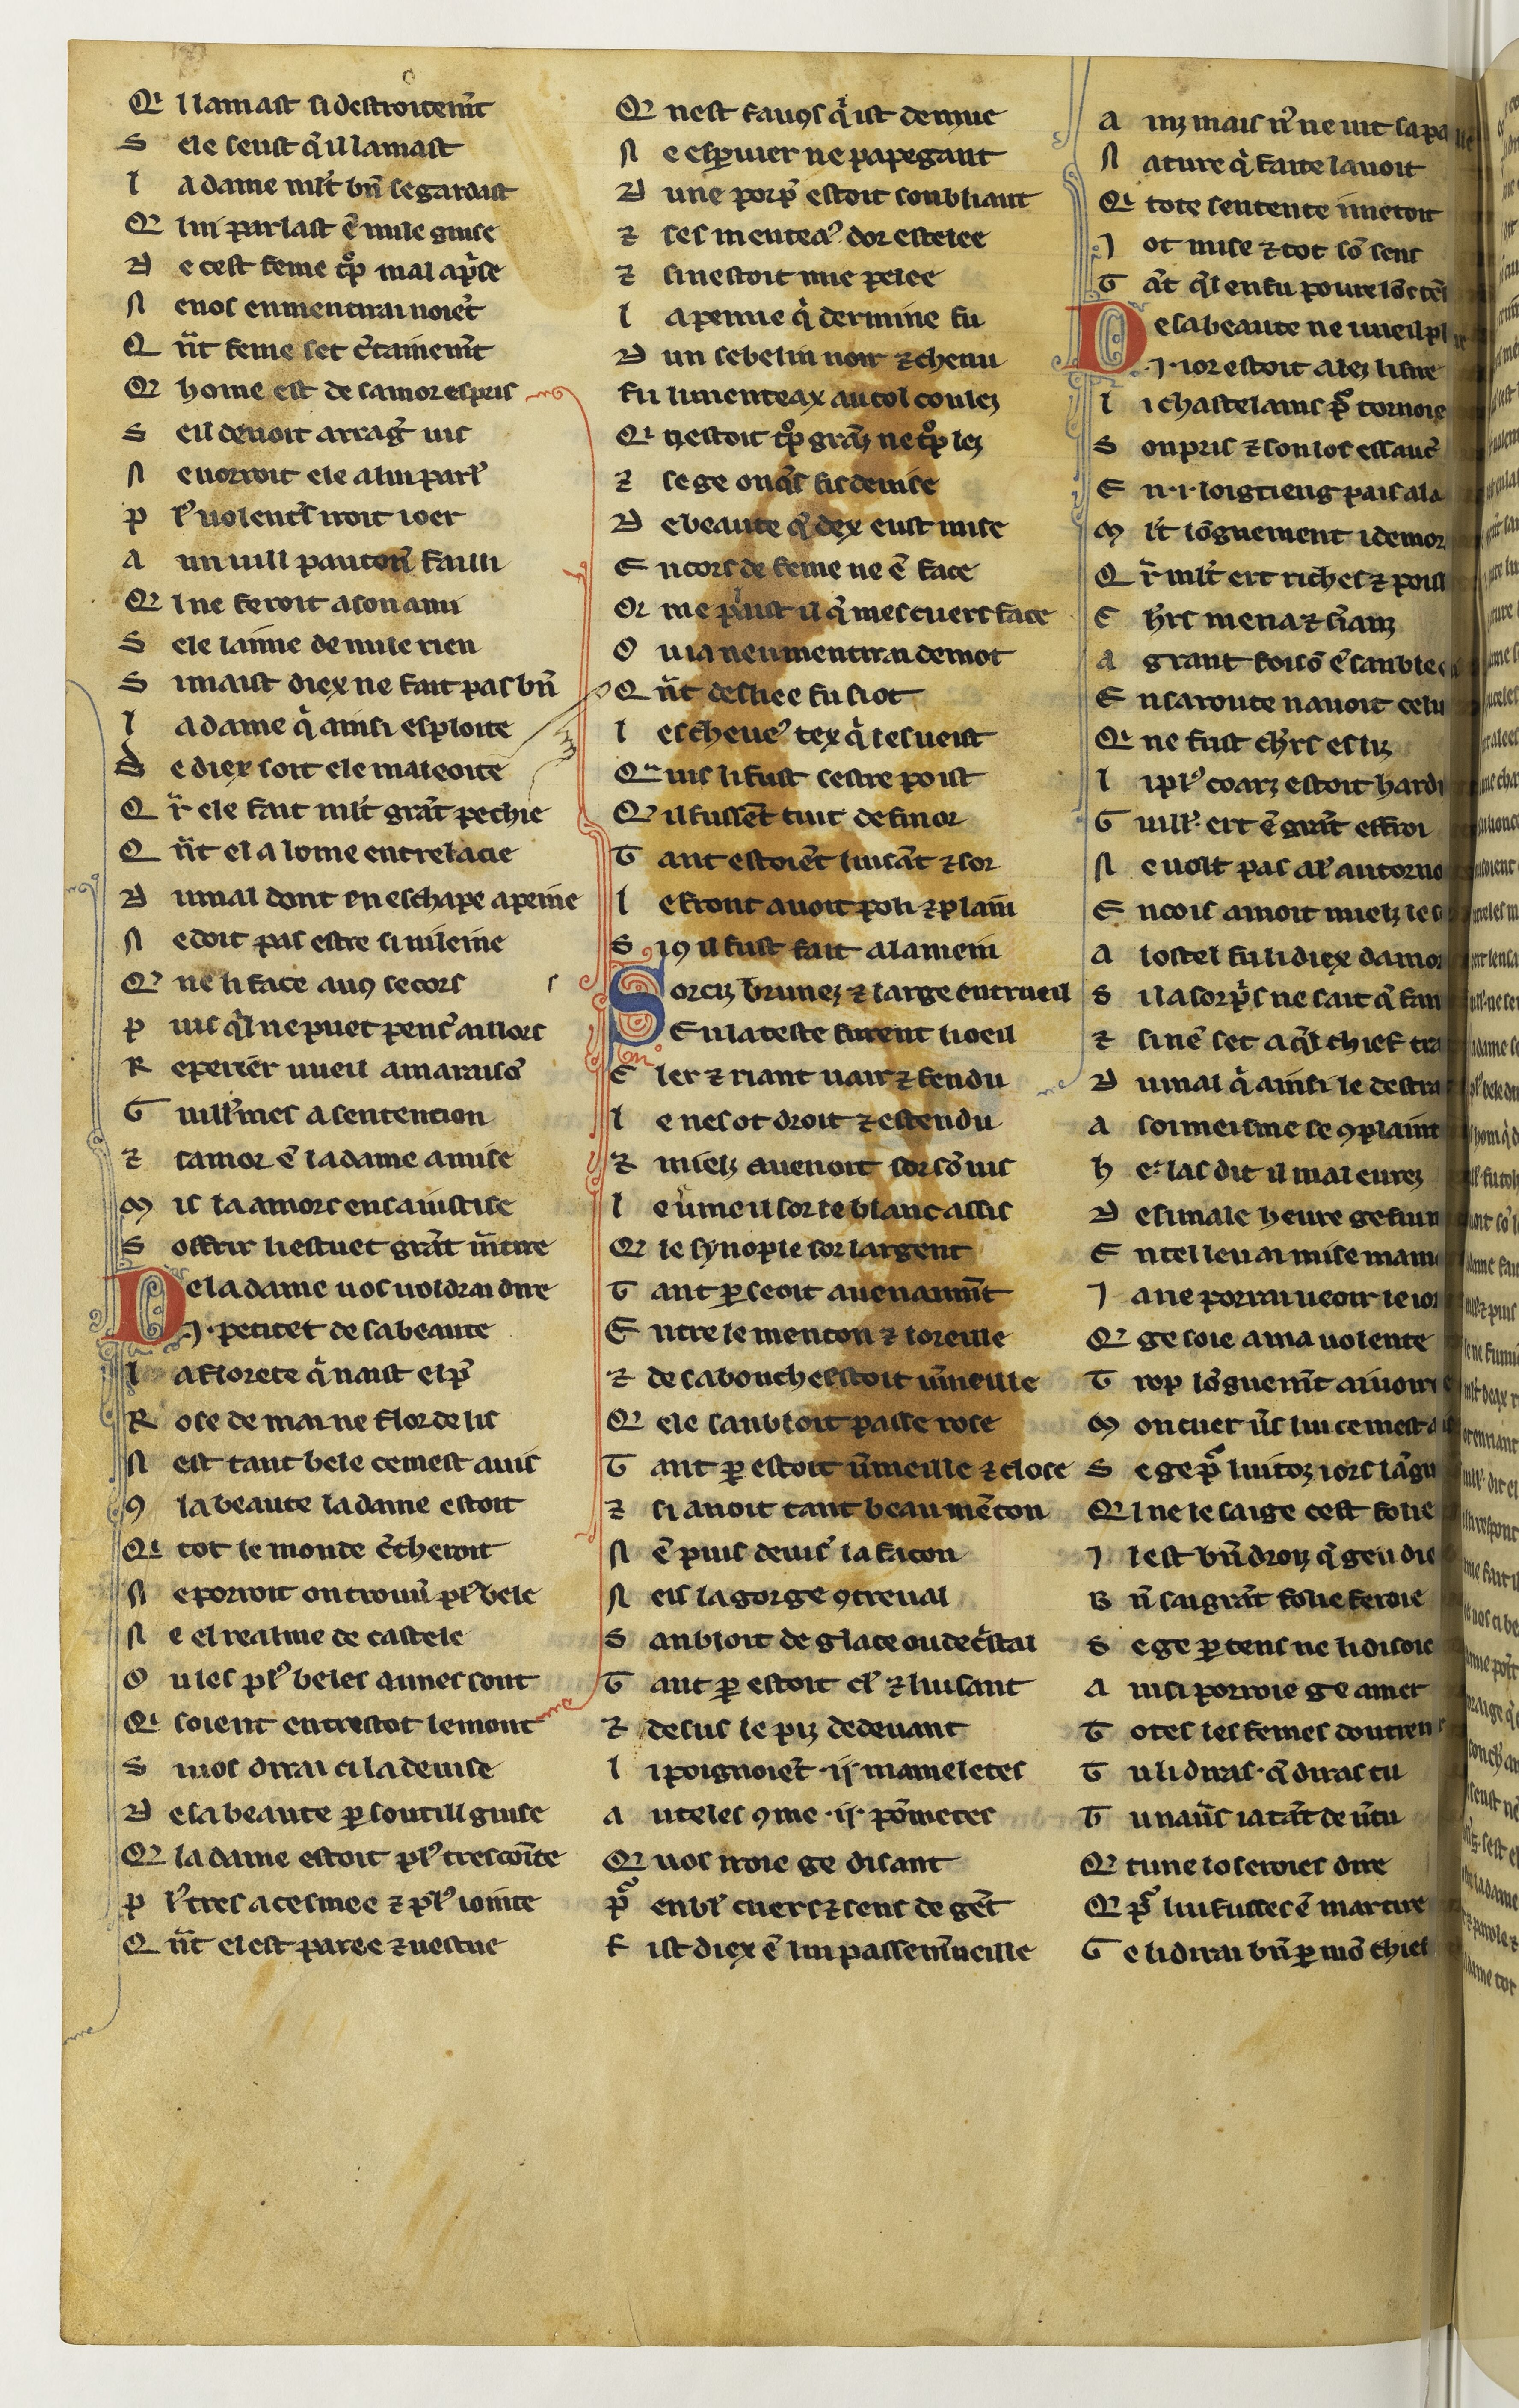 Qi lamast si destroitem̃t
S ele seust q̃ il lamast
l a dame ml̃t bñ se gardast
Q̃ lui parlast ẽ nule guise
D e cest feme tͦp mal ap̃se
N e uos en mentirai noiẽt
Q ñt feme set c̃tainem̃t
Q̃ home est de samor espris
S eil deuoit arrag̃ uis
N e uorroit ele a lui parl̃
P lꝰ uolent̃s iroit ioer
A un uill pautoñ failli
Q̃ l ne feroit a son ami
S ele laime de nule rien
S i maist diex ne fait pas bñ
l a dame q̃ ainsi esploite
D e diex soit ele maleoite
Q r̃ ele fait ml̃t grãt pechie
Q ñt el a lome entrelacie
D u mal dont en eschape a peine
N e doit pas estre si uileine
Q̃ ne li face auꝯ secors
P uis q̃l ne puet pens̃ aillors
R eperier uueil a ma raisõ
G uill̃mes a sentencion
⁊ samor ẽ la dame a mise
M is la amors en sa iustise
S offrir li estuet grãt m̃tire
D e la dame uos uoldrai dire
.I. petitet de sa beaute
l a florete q̃ naist el p̃
R ose de mai ne flor de lis
N est tant bele ce mest auis
ꝯ la beaute la dame estoit
Qi tot le monde c̃cheroit
N e porroit on trouũ plꝰ bele
N e el realme de castele
O u les plꝰ beles dames sont
Qi soient en trestot le mont
S i uos dirai ci la deuise
D e sa beaute ꝑ soutill guise
Q̃ la dame estoit plꝰ tres coĩte
P lꝰ tres acesmee ⁊ plꝰ iointe
Q ñt el est paree ⁊ uestue
Q̃ nest fauꝯs q̃ ist de mue
N e esp̃uier ne papegaut
D une porp̃ estoit soubliaut
⁊ ses menteaꝰ dor estelee
⁊ si nestoit mie pelee
l a penne q̃ dermine fu
D un sebelin noir ⁊ chenu
Fu li menteax au col coulez
Qi nestoit tͦp granz ne tͦp lez
⁊ se ge onq̃s fis deuise
D e beaute q̃ dex eust mise
E n cors de feme ne ẽ face
Or me p̃ist il q̃ mes cuers face
O u ia nen mentirai de mot
Q ñt desliee fu si ot
l es cheueꝰ tex q̃ les ueist
Qͣ uis li fust sestre poist
Q̃ il fussẽt tuit de fin or
T ant estoiẽt luisãt ⁊ sor
l e front auoit poli ⁊ plain
S i ꝯ il fust fait a la mein
S orciz brunez ⁊ large entrueil
En la teste furent li oeil
C ler ⁊ riant uair ⁊ fendu
l e nes ot droit ⁊ estendu
⁊ mielz auenoit sor sõ uis
l e ũmeil sor le blanc assis
Q̃ le synople sor largent
T ant ꝑ seoit auenam̃t
E ntre le menton ⁊ loreille
⁊ de sa bouche estoit m̃ueille
Q̃ ele sanbloit passe rose
T ant ꝑ estoit ũmeille ⁊ close
⁊ si auoit tant beau mẽton
N ẽ puis deuis̃ la facon
N eis la gorge ꝯtreual
S anbloit de glace ou de c̃stal
T ant ꝑ estoit cl̃ ⁊ luisant
⁊ desus le piz dedeuant
l i poignoiẽt .ij. mameletes
A uteles ꝯme .ij. põmetes
Q̃ uos iroie ge disant
P̃ enbl̃ cuers ⁊ sens de gẽt
F ist diex ẽ lui passem̃ueille
A inz mais nꝰ ne uit sa
N ature q̃ faite lauoit
Qi tote sentente i metoit
I ot mise ⁊ tot sõ sens
T ãt q̃l en fu
D e sa beaute ne uueil
.I. ior estoit alez
l i chastelains p̃
S on pris ⁊ son los essauc̃
E n .i. loigtieng pais ala
M lt̃ lõguement i demor
Q r̃ ml̃t ert riches ⁊ poi
C h̃rs mena ⁊ siãz
A grant foisõ ẽsanble
E n sa route nauoit celu
Qi ne fust ch̃rs esliz
l i plꝰ coarz estoit hardi
G uill̃. ert ẽ grãt effroi
N e uolt pas al̃ au
E ncois amoit mielz le
A lostel fu li diex damo
S i la sorp̃s ne sait q̃
⁊ si nẽ set a q̃l chief
D u mal q̃ ainsi le
A soi meisme se ꝯplaint
H e las dit il mal eurez
D e si male heure ge fui
E n tel leu ai mise mam
I a ne porrai ueoir le ior
Q̃ ge soie a ma uolente
T rop lõguem̃t ai
M on cuer ũs lui ce mest
S e ge p̃ lui toz iors lãgu
Q̃ l ne le saige cest folie
I l est bñ droiz q̃ geu die
B ñ sai grãt folie feroie
S e ge ꝑ tens ne li disoie
A insi porroie ge amer
T otes les femes doutrem
T u li diras. q̃ diras tu
T u nauĩs ia tãt de ũtu
Q̃ tu ne loseroies dire
Q̃ p̃ lui fusses ẽ martire
G e li dirai bñ ꝑ mõ chief